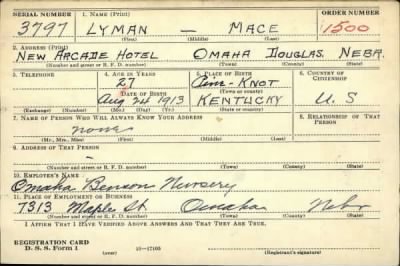 SERIAL NUMBER 1. NAME (Print) ORDER NUMBER
3797 LYMAN — MACE 1500
(First) (Middle) (Last)
2. ADDRESS (Print)
NEW ARCADE HOTEL OMAHA DOUGLAS NEBR.
(Number and street or R. F. D. number) (Town) (County) (State)
3. TELEPHONE 4. AGE IN YEARS 5. PLACE OF BIRTH 6. COUNTRY OF CITIZENSHIP
27 Pine-KNOT
(Town or county)
DATE OF BIRTH
Aug 24 1913 KENTUCKY U. S
(Exchange) (Number) (Mo.) (Day) (Yr.) (State or country)
7. NAME OF PERSON WHO WILL ALWAYS KNOW YOUR ADDRESS 8. RELATIONSHIP OF THAT PERSON
none
(Mr., Mrs., Miss) (First) (Middle) (Last)
9. ADDRESS OF THAT PERSON
-
(Number and street or R. F. D. number) (Town) (County) (State)
10. EMPLOYER'S NAME
Omaha Benson Nursery
11. PLACE OF EMPLOYMENT OR BUSINESS
7313 Maple St Omaha Nebr
(Number and street or R. F. D. number) (Town) (County) (State)
I AFFIRM THAT I HAVE VERIFIED ABOVE ANSWERS AND THAT THEY ARE TRUE.
REGISTRATION CARD
D. S. S. Form 1 (over) 16-17105 (Registrant's signature)